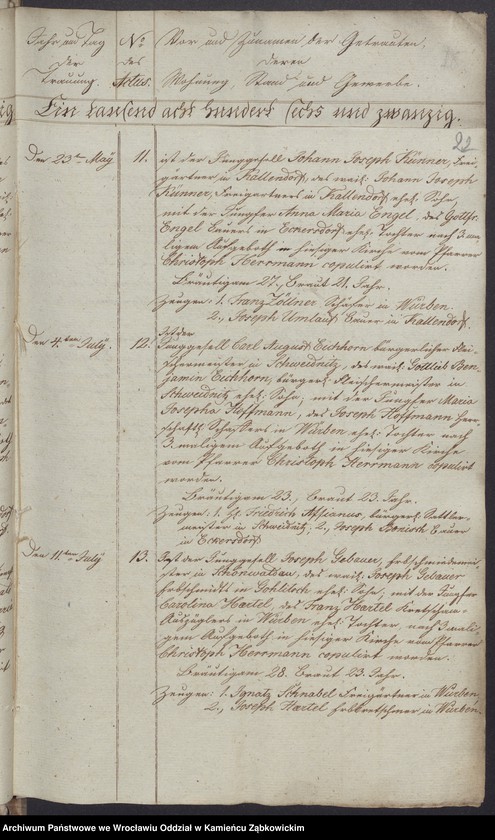 Jahr und Tag
der
Trauung.
No
des
Actus.
Vor und Zunamen der Getrauten,
deren
Wohnung, Stand und Gewerbe.
Ein tausend acht hundert sechs und zwanzig.
22
Den 23ten May
11.
ist der Junggesell Johann Joseph Künner, Frei
gärtner in Kallendorf, des weil. Johann Joseph
Künner, Freigärtners in Kallendorf ehel. Sohn,
mit der Jungfer Anna Maria Engel, des Gottfr.
Engel Bauers in Eckersdorf ehel. Tochter nach 3 ma
ligem Aufgeboth in hiesiger Kirche vom Pfarrer
Christoph Herrmann copulirt worden.
Bräutigam 27., Braut 21. Jahr.
Zeugen: 1. Franz Zöllner Schäfer in Würben.
2., Joseph Umlauf Bauer in Kallendorf.
Den 4ten July
12.
Ist der
Junggesell Carl August Eichhorn bürgerlicher Flei
schermeister in Schweidnitz, des weil. Gottlieb Ben
jamin Eichhorn, bürgerl. Fleischermeister in
Schweidnitz ehel. Sohn, mit der Jungfer Maria
Josepha Hoffmann, des Joseph Hoffmann herr
schaftl. Schäfers in Würben ehel. Tochter nach
3 maligem Aufgeboth in hiesiger Kirche
vom Pfarrer Christoph Herrmann copulirt
worden.
Bräutigam 23., Braut 23. Jahr.
Zeugen: 1. Friedrich bürgerl. Sattler
meister in Schweidnitz; 2., Joseph Bönisch Bauer
in Eckersdorf
Den 11ten July
13.
Ist der Junggesell Joseph Gebauer, Erbschmiedemei
ster in Schönwaldau, des weil. Joseph Gebauer
Erbschmidts in ehel. Sohn, mit der Jungfer
Carolina Härtel, des Franz Härtel Kretscham
Auszüglers in Würben ehel. Tochter, nach 3 mali
gem Aufgeboth in hiesiger Kirche vom Pfarrer
Christoph Herrmann copulirt worden.
Bräutigam 28. Braut 23. Jahr.
Zeugen: 1. Ignatz Schnabel Freigärtner in Würben
2., Joseph Härtel Erbkretschmer in Würben.
Archiwum Państwowe we Wrocławiu Oddział w Kamieńcu Ząbkowickim